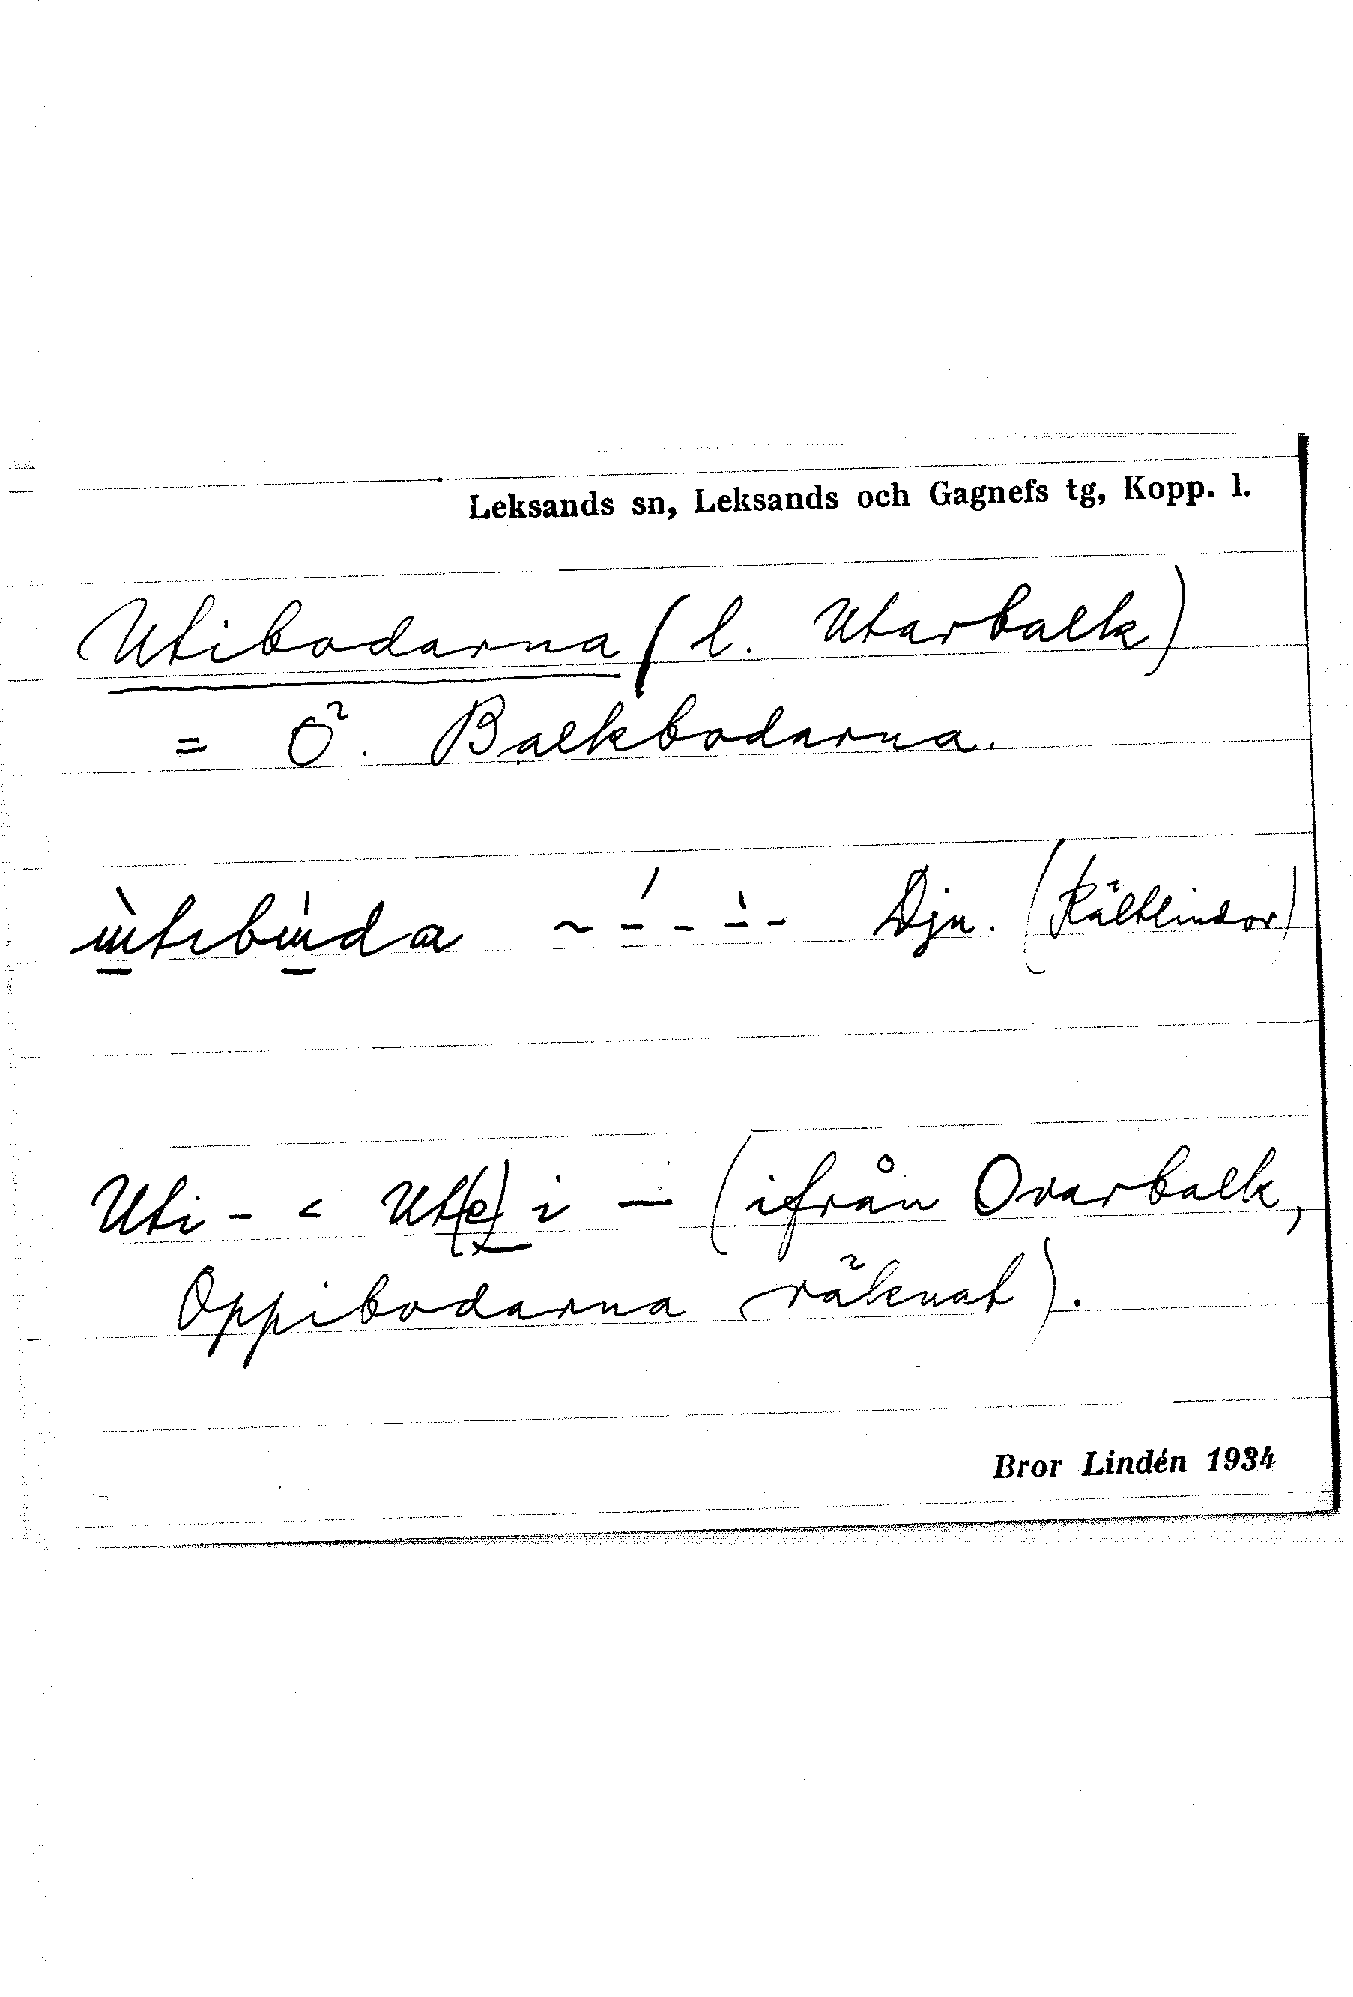 Leksands sn, Leksands och Gagnefs tg, Kopp. l.
Utibodarna (l. Utarbalk)
= Ö. Balkbodarna.
Djn. (Källlindor)
Uti- < Ut(e) i — (ifrån Ovarbalk,
Oppibodarna räknat).
Bror Lindén 1934